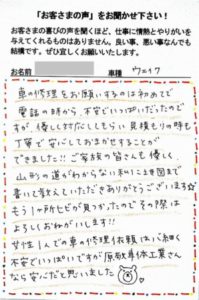 「お客さまの声」をお聞かせ下さい！
お客さまの喜びの声を聞くほど、仕事に情熱とやりがいを
与えてくれるものはありません。良い事、悪い事なんでも
結構です。ぜひ宜しくお願いいたします。
お名前 車種 ウェイク
車の修理をお願いするのは初めてで
電話の時から、不安でいっぱいだったので
すが、優しく対応してもらい見積もりの時も
丁寧で安心しておまかせすることが
できました!! ご家族の皆さんも優しく、
山形の道がわからない私に地図まで
書いて教えていただきありがとうございます
もう1ヶ所キズが見つかったのでその際は
よろしくおねがいします!!
女性1人での車の修理依頼は心細く
不安でいっぱいですが原敬車体工業さん
なら安心だと思いました